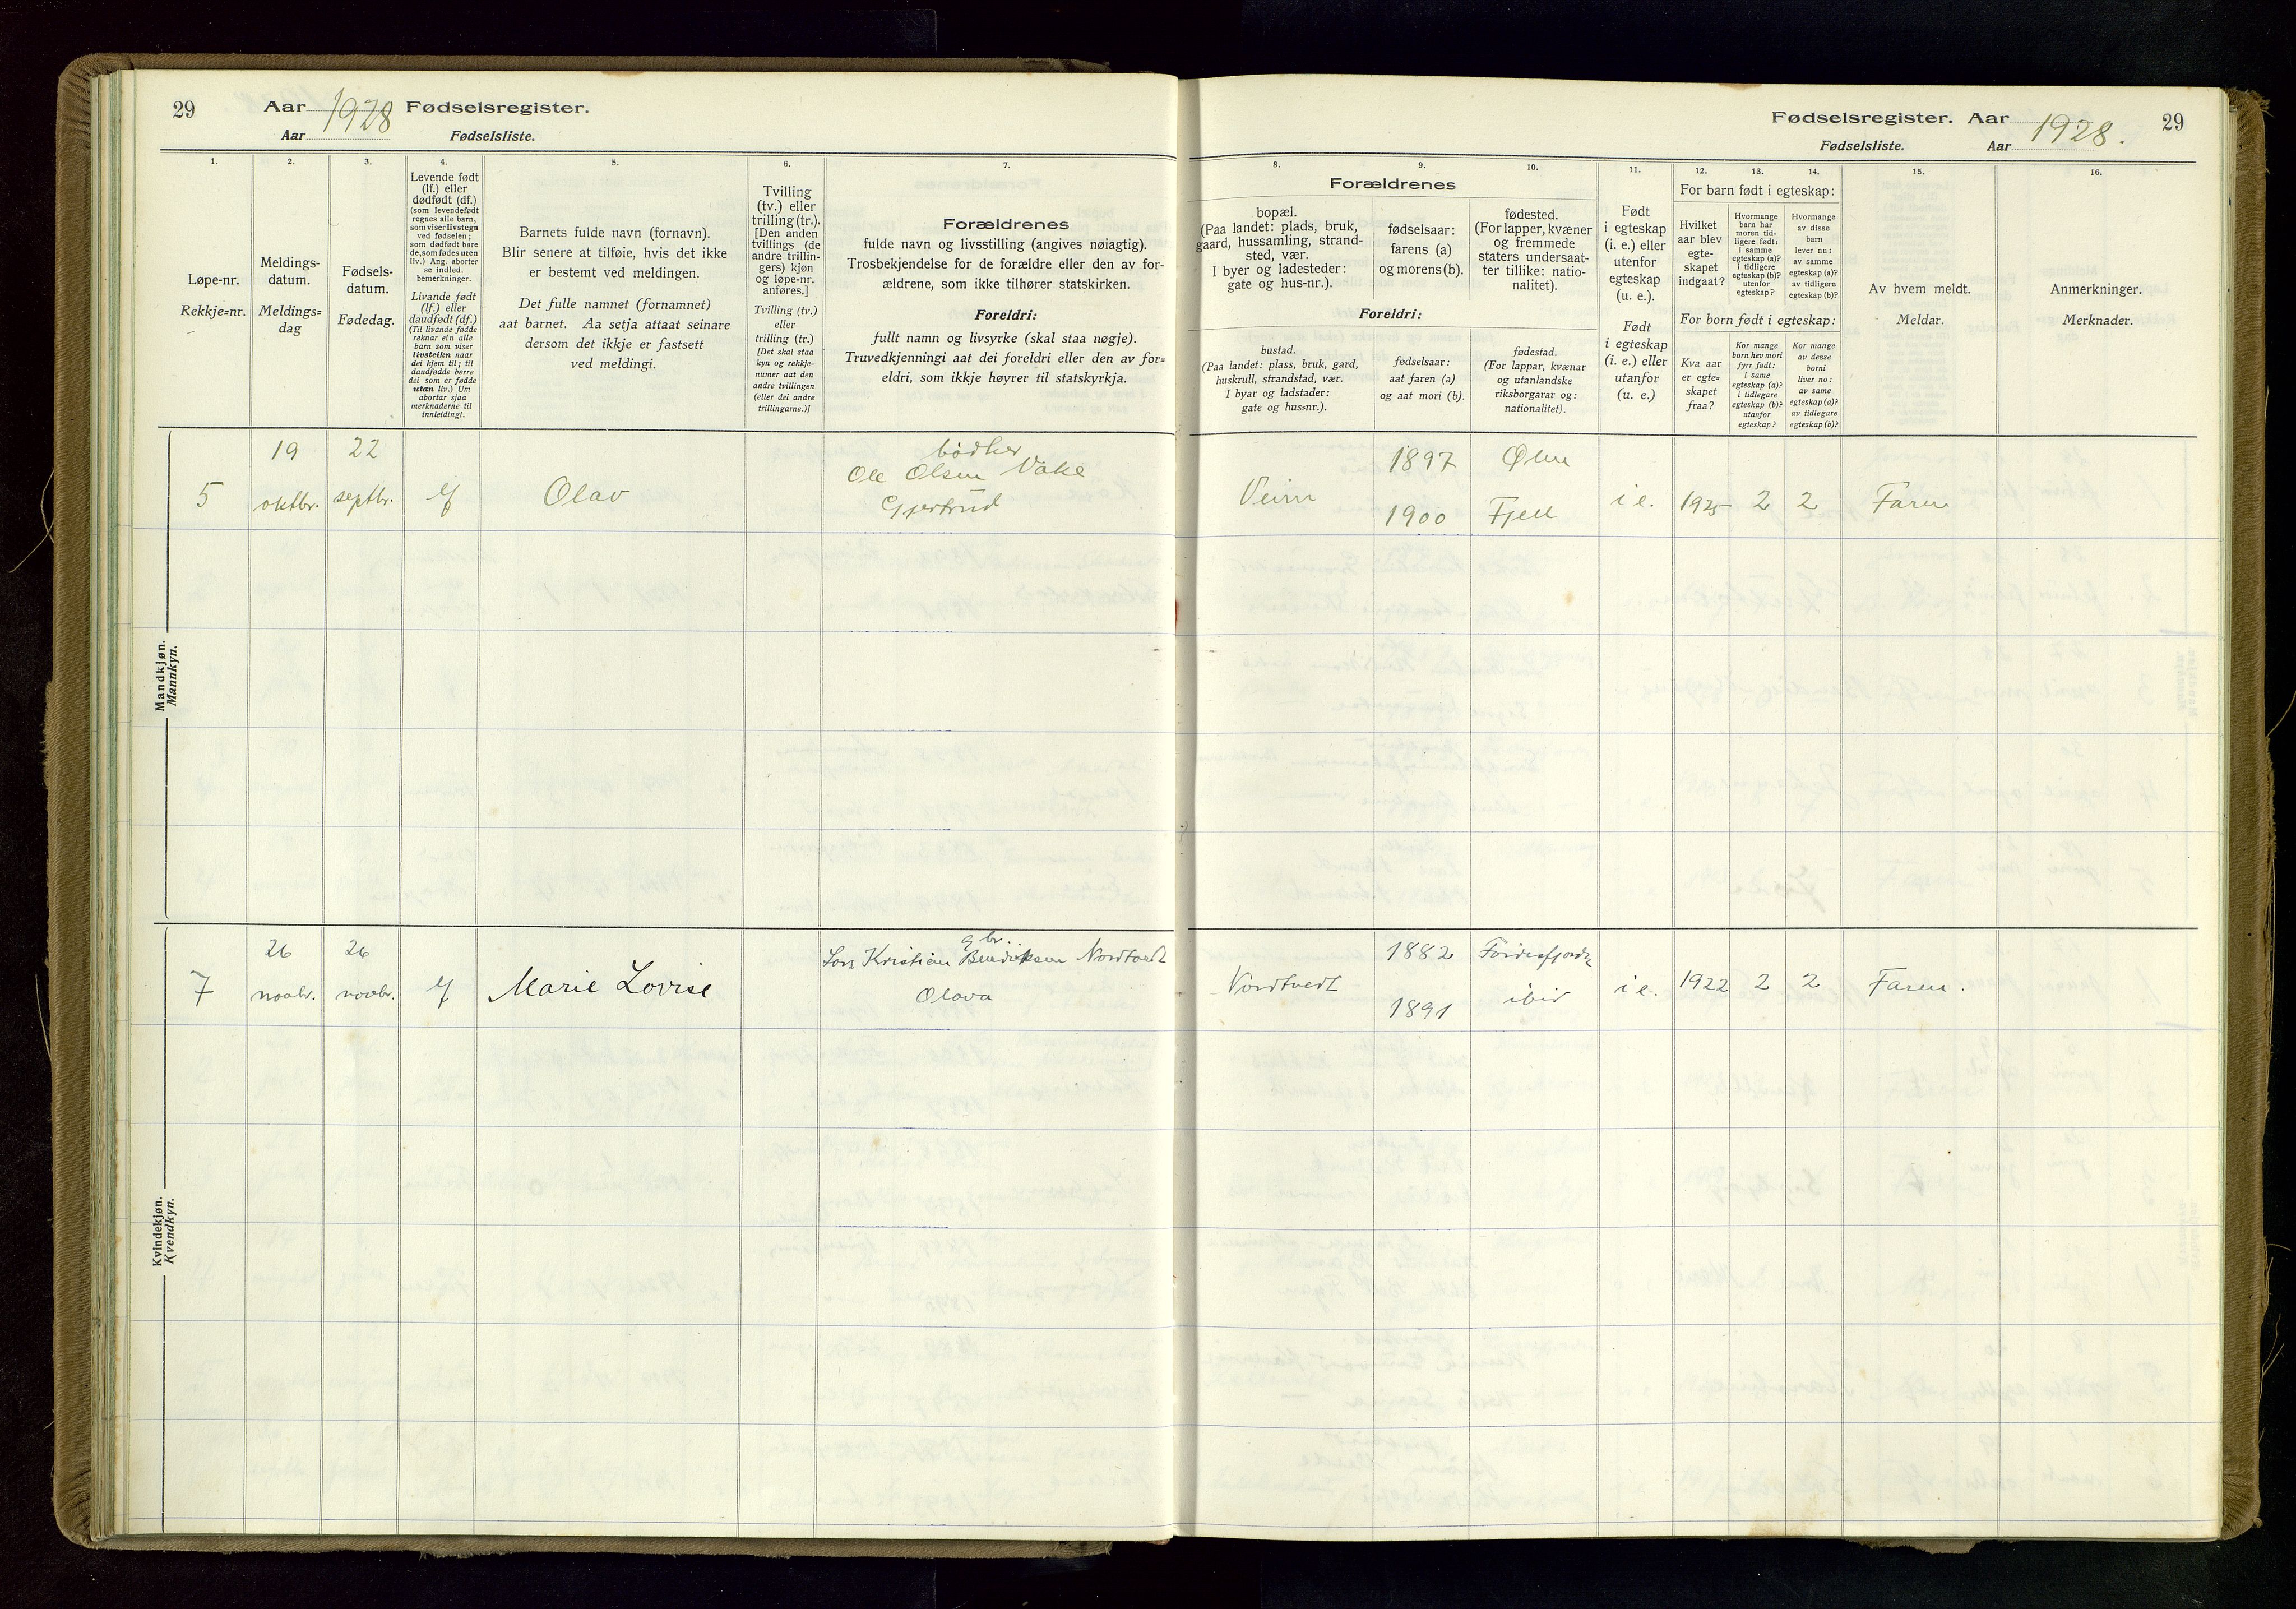 29 Aar 1928 Fødselsregister.
Aar Fødselsliste.
Fødselsregister. Aar 1928. 29
Fødselsliste. Aar
1. 2. 3. 4. 5. 6. 7.
Løpe-nr.
Rekkje=nr.
Meldings-
datum.
Meldings=
dag
Fødsels-
datum.
Fødedag.
Levende født
(lf.) eller
dødfødt (df.)
(som levendefødt
regnes alle barn,
som viser livstegn
ved fødselen;
som dødfødt bare
de, som fødes uten
liv.) Ang. aborter
se indled.
bemerkninger.
Livande født
(lf.) eller
daudfødt (df.)
(Til livande fødde
reknar ein alle
barn som viser
livsteikn naar
dei kjem til; til
daudfødde berre
dei som er fødde
utan liv.) Um
abortar sjaa
merknaderne til
innleidingi.
Barnets fulde navn (fornavn).
Blir senere at tilføie, hvis det ikke
er bestemt ved meldingen.
Det fulle namnet (fornamnet)
aat barnet. Aa setja attaat seinare
dersom det ikkje er fastsett
ved meldingi.
Tvilling
(tv.) eller
trilling (tr.).
[Den anden
tvillings (de
andre trillin-
gers) kjøn
og løpe-nr.
anføres.]
Tvilling (tv.)
eller
trilling (tr.)
[Det skal staa
kyn og rekkje-
numer aat den
andre tvillingen
(eller dei andre
trillingarne.)]
Forældrenes
fulde navn og livsstilling (angives nøiagtig).
Trosbekjendelse for de forældre eller den av for-
ældrene, som ikke tilhører statskirken.
Foreldri:
fullt namn og livsyrke (skal staa nøgje).
Truvedkjenningi aat dei foreldri eller den av for=
eldri, som ikkje høyrer til statskyrkja.
8. 9. 10. 11. 12. 13. 14. 15. 16.
Forældrenes
bopæl.
(Paa landet: plads, bruk,
gaard, hussamling, strand-
sted, vær.
I byer og ladesteder:
gate og hus-nr.).
fødselsaar:
farens (a)
og morens (b).
fødested.
(For lapper, kvæner
og fremmede
staters undersaat-
ter tillike: natio-
nalitet).
Foreldri:
bustad.
(Paa landet: plass, bruk, gard,
huskrull, strandstad, vær.
I byar og ladstader:
gate og hus=nr.).
fødselsaar:
aat faren (a)
og aat mori (b).
fødestad.
(For lappar, kvænar
og utanlandske
riksborgarar og:
nationalitet).
Født
i egteskap
(i. e.) eller
utenfor
egteskap
(u. e.).
Født
i egteskap
(i. e.) eller
utanfor
(u. e.)
For barn født i egteskap:
Hvilket
aar blev
egte-
skapet
indgaat?
Hvormange
barn har
moren tid-
ligere født:
i samme
egteskap (a)?
i tidligere
egteskap (b)?
utenfor
egteskap?
Hvormange
av disse
barn
lever nu:
av samme
egteskap (a)?
av tidligere
egteskap (b)?
For born født i egteskap:
Kva aar
er egte=
skapet
fraa?
Kor mange
born hev mori
fyrr født:
i same
egteskap (a)?
i tidlegare
egteskap (b)?
utanfor
egteskap?
Kor mange
av desse
borni
liver no:
av same
egteskap (a)?
av tidlegare
egteskap (b)?
Av hvem meldt.
Meldar.
Anmerkninger.
Merknader.
Mandkjøn.
Mannkyn.
19 22 bødker 1897
5 oktbr. septbr. lf Olav Ole Olsen Vake
Gjertrud
1900 Fjell i e. 1925 2 2 Faren
Kvindekjøn.
Kvendkyn.
26 26 gbr. 1882
7 novbr. novbr. lf Marie Lovise Lars Kristian Bendiksen Nordtvedt
Olava
Nordtvedt 1891 ibid i e. 1922 2 2 Faren.